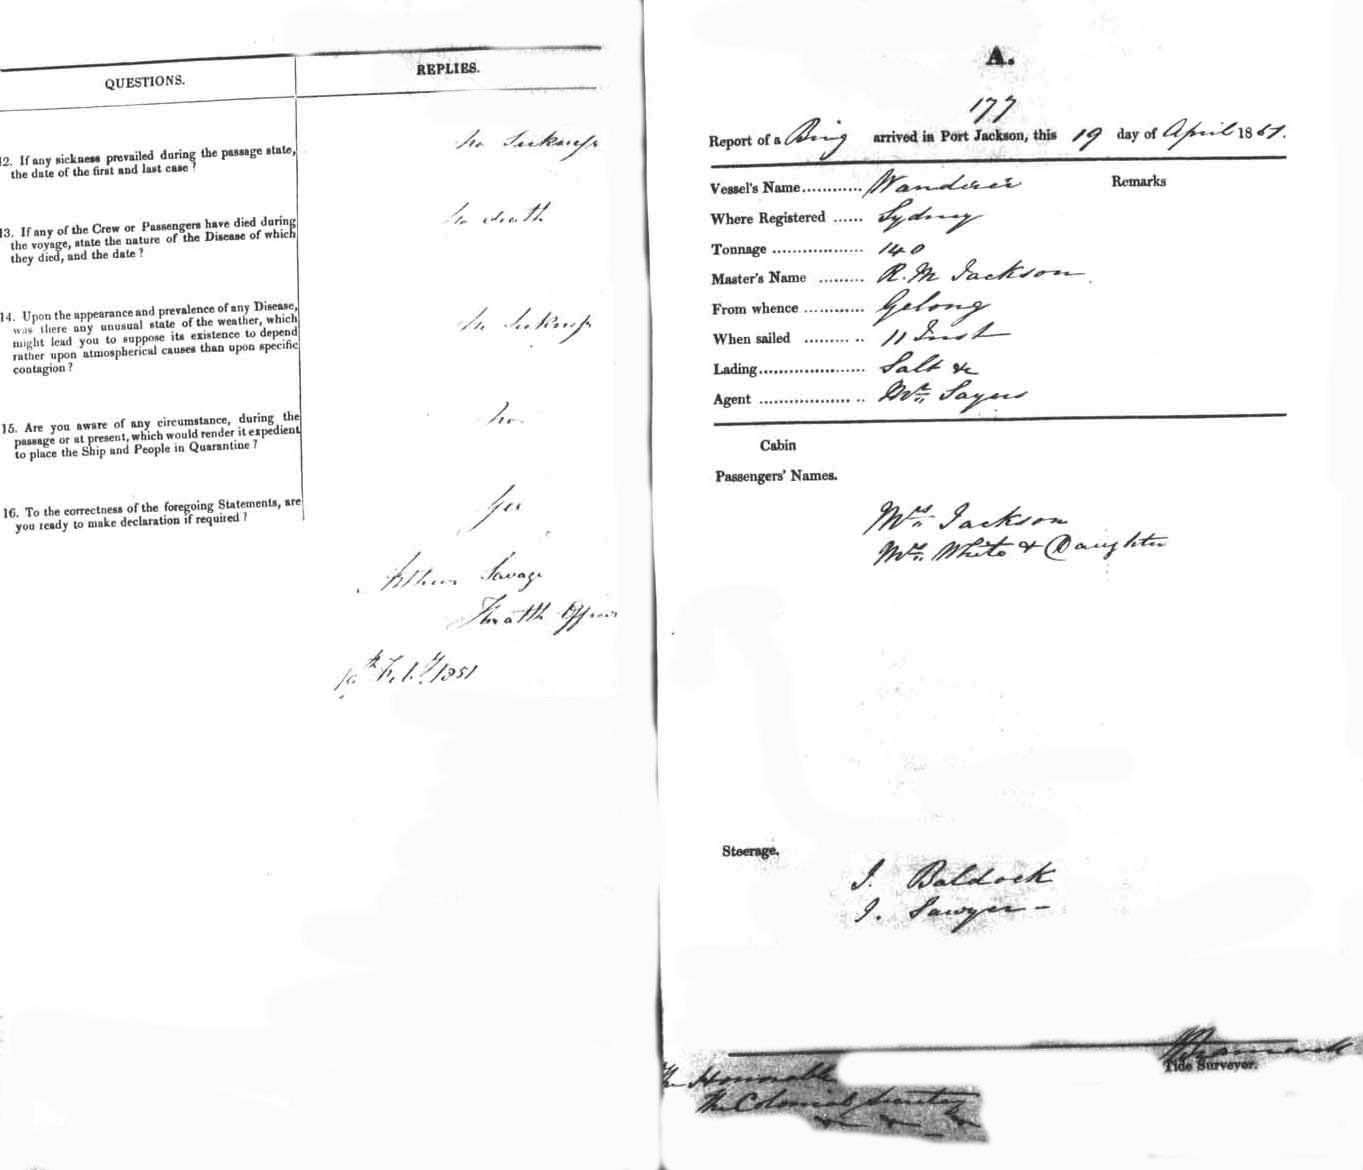 QUESTIONS.
REPLIES.
12. If any sickness prevailed during the passage state,
the date of the first and last case ?
No Sickness
13. If any of the Crew or Passengers have died during
the voyage, state the nature of the Disease of which
they died, and the date ?
No death
14. Upon the appearance and prevalence of any Disease,
was there any unusual state of the weather, which
might lead you to suppose its existence to depend
rather upon atmospherical causes than upon specific
contagion ?
No Sickness
15. Are you aware of any circumstance, during the
passage or at present, which would render it expedient
to place the Ship and People in Quarantine ?
No.
16. To the correctness of the foregoing Statements, are
you ready to make declaration if required ?
Yes
Arthur Savage
Health Officer
Feby 1851
A.
177
Report of a Brig arrived in Port Jackson, this 19 day of April 1851.
Vessel's Name............ Wanderer
Remarks
Where Registered ...... Sydney
Tonnage .................. 140
Master's Name ......... R. M Jackson
From whence ............ Gelong
When sailed ......... .. 11 Inst
Lading..................... Salt &c
Agent .................. .. Mr. Sayers
Cabin
Passengers' Names.
Mrs. Jackson
Mrs. White & Daughter
Steerage.
J. Baldock
J. Sawyer -
Tide Surveyor.
The Honorable
The Colonial Secretary
&c &c &c